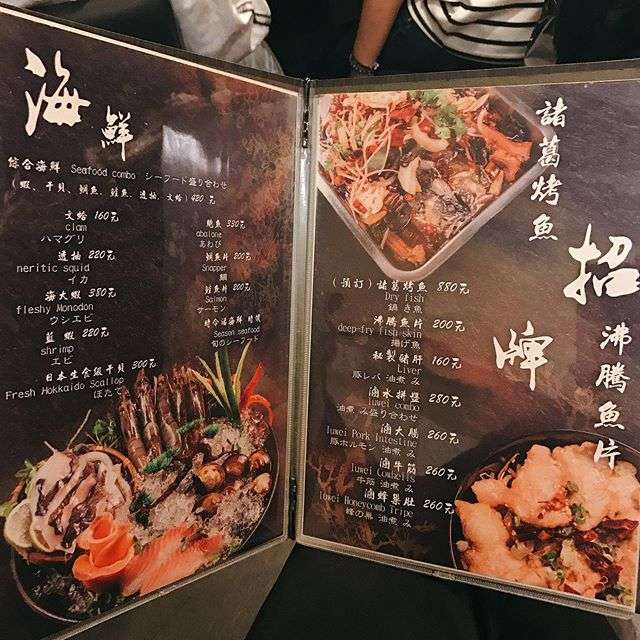 海鮮
綜合海鮮 Seafood combo シーフード盛り合わせ
(蝦、干貝、鯛魚、鮭魚、透抽、文蛤) 420元
文蛤 160元
clam
ハマグリ
透抽 220元
neritic squid
イカ
海大蝦 380元
fleshy Monodon
ウシエビ
藍蝦 220元
shrimp
エビ
日本生食級干貝 300元
Fresh Hokkaido Scallop
ほたて
鮑魚 330元
abalone
あわび
鯛魚片 200元
Snapper
鯛
鮭魚片 200元
Salmon
サーモン
時令活海鮮 時價
Season seafood
旬のシーフード
諸葛烤魚
招牌
沸騰魚片
(預訂)諸葛烤魚 880元
Dry fish
鍋き魚
沸騰魚片 200元
deep-fry fish skin
揚げ魚
秘製豬肝 160元
Liver
豚レバ 油煮み
滷水拼盤 280元
luwei combo
油煮み盛り合わせ
滷大腸 260元
luwei Pork Intestine
豚ホルモン 油煮み
滷牛筋 260元
luwei Cowheels
牛筋 油煮み
滷蜂巢肚 260元
luwei Honeycomb Tripe
蜂の巣 油煮み